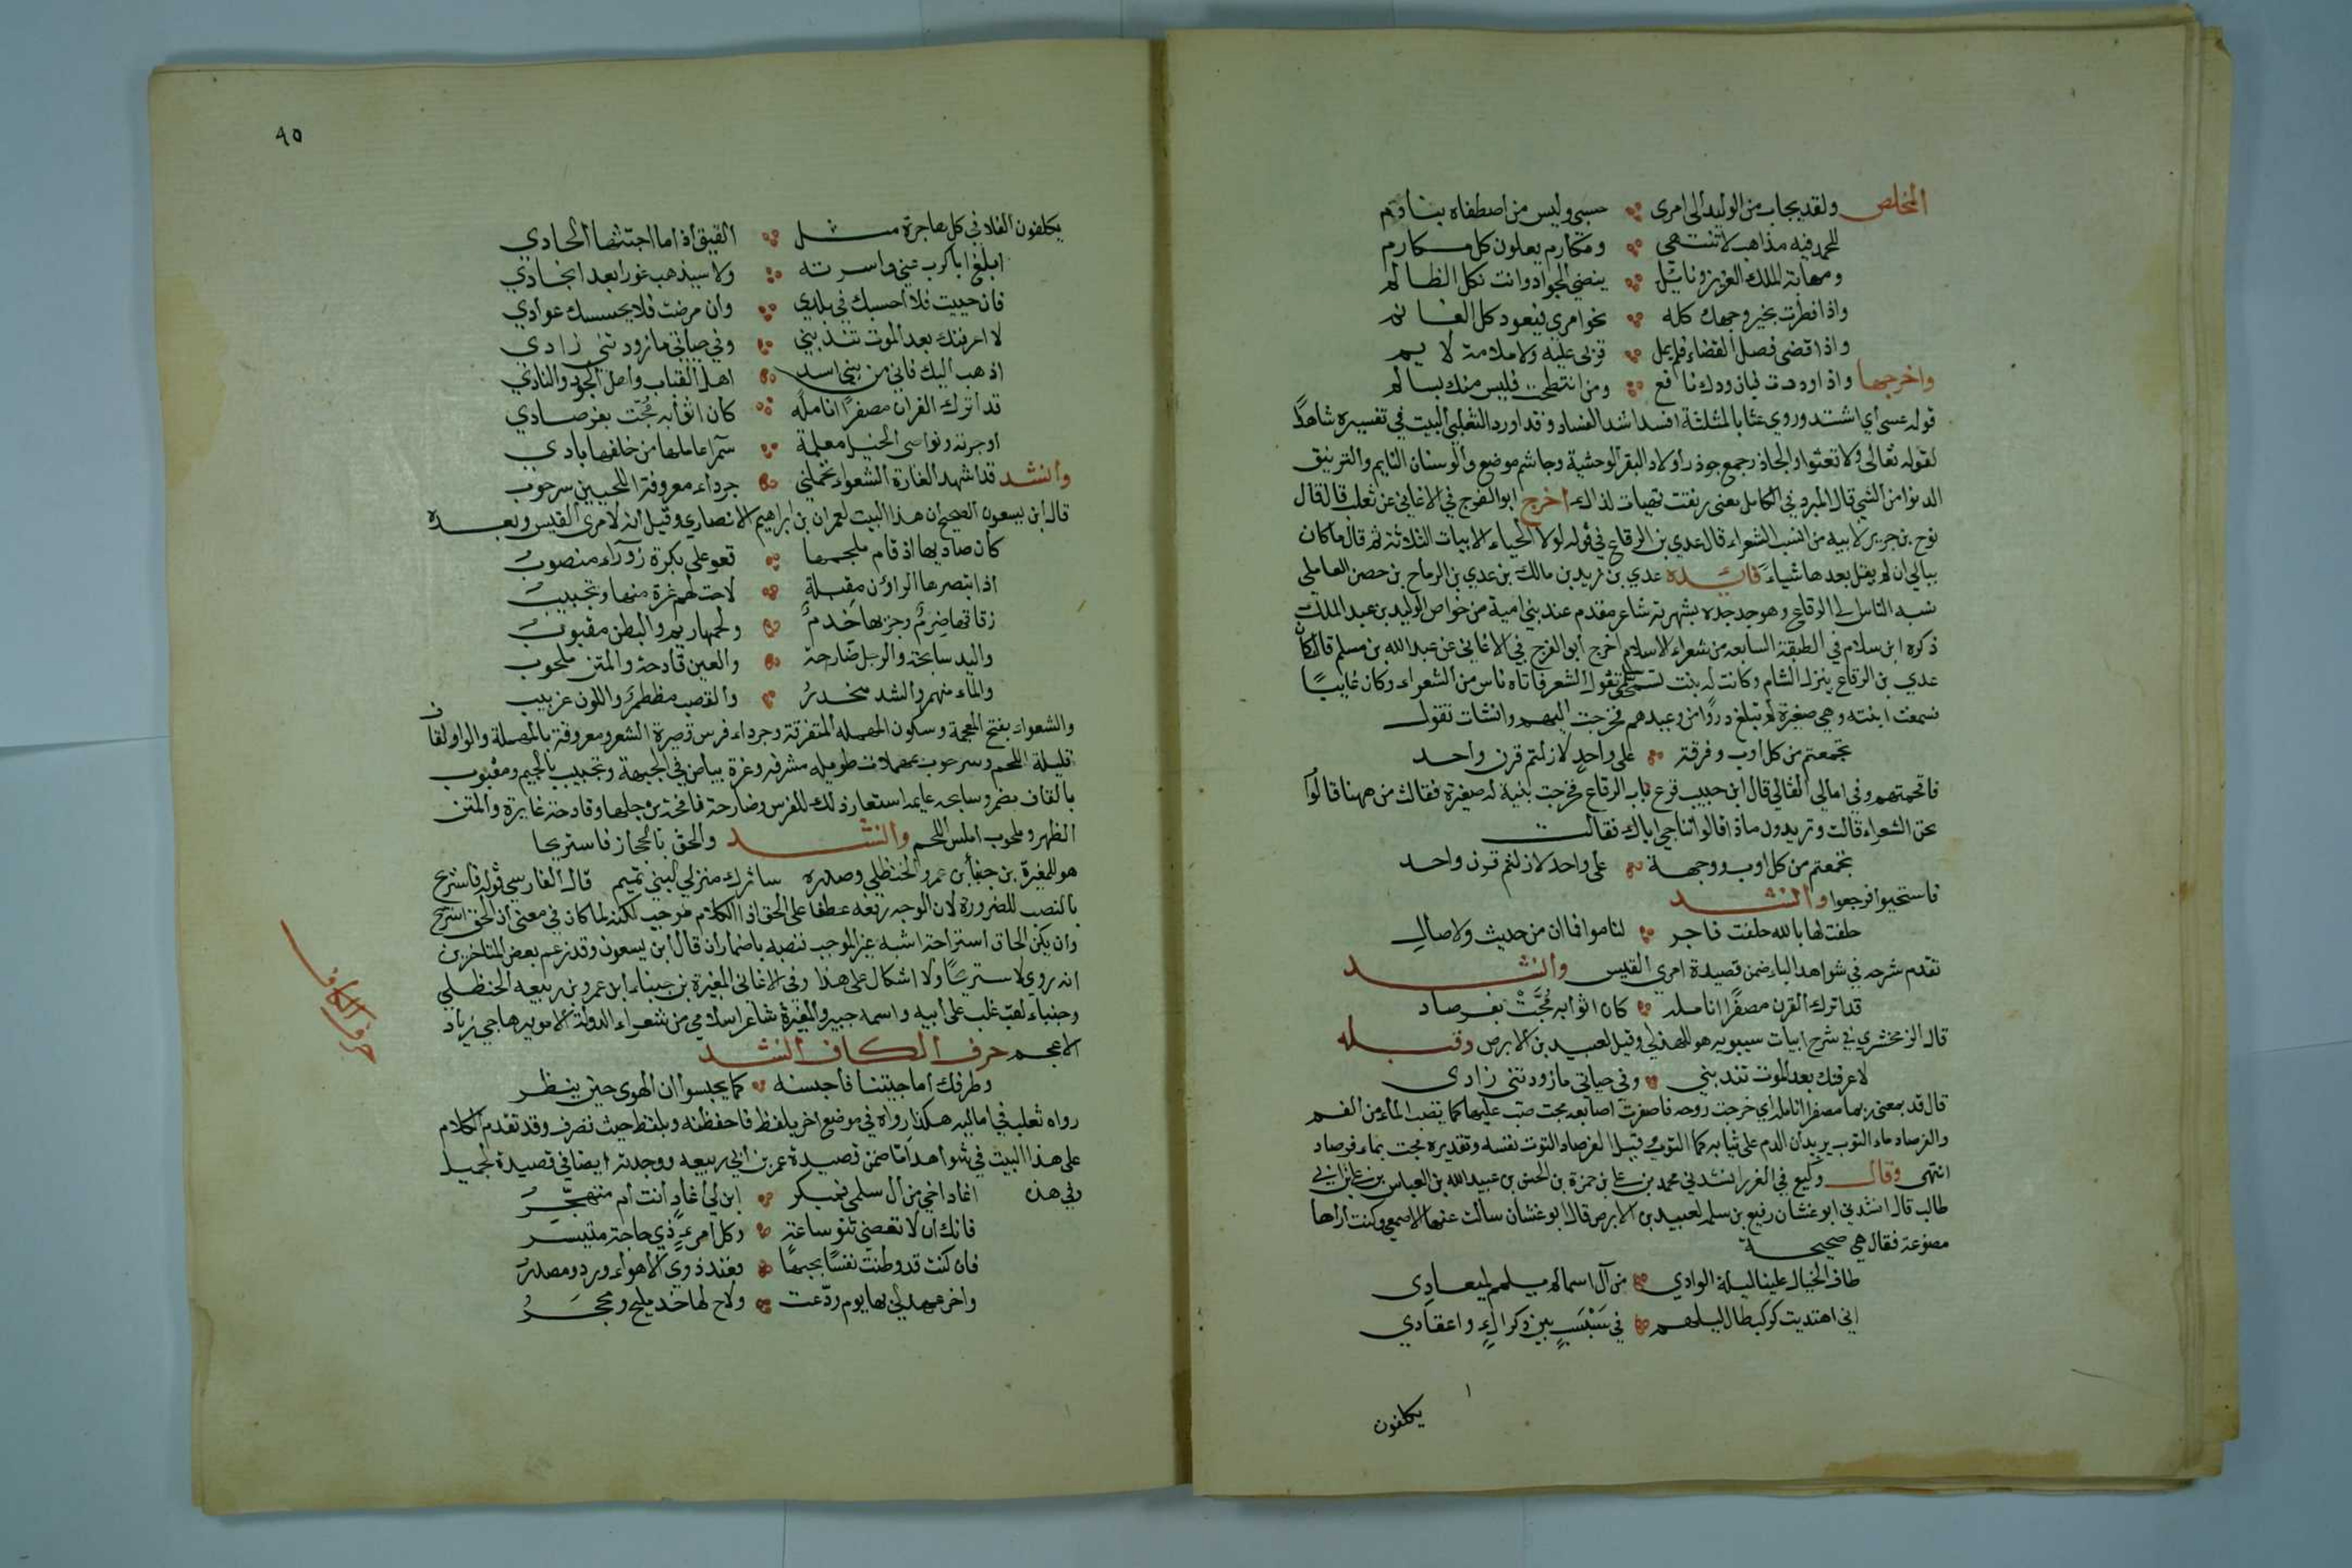 المخلص ولقد يجاب من الوليد الى امرى حسبى وليس من اصطفاه بنادم
للحمد فيه مذاهب لا تنتهي ومكارم يعلون كل مكارم
ومهابة الملك العزيز ونائل ينضي الجواد وانت نكل الظالم
واذا نظرت بخير وجهك كله نحو امرى فيعود كل الغانم
واذا قضى فصل القضاء فلم يمل قربى عليه ولا ملامة لايم
واخرجها واذا وددت فان ودك نافع ومن انتطحت فليس منك بسالم
قوله عسى اي اشتد وروي عثا بالمثلثة افسد اشد الفساد وقد اورد الثعلبي البيت في تفسيره شاهدًا
لقوله تعالى ولا تعثوا والجاذر جمع جوذر اولاد البقر الوحشية وجاشم موضع والوسنان النايم والترنيق
الدنوا من الشي قال المبرد في الكامل معنى رنقت تهيات لذلك اخرج ابو الفرج في الاغاني عن ثعلب قال قال
نوح بن جرير لابيه من انسب الشعراء قال عدي بن الرقاع في قوله لولا الحياء الابيات الثلاثة ثم قال ما كان
يبالي ان لم يقل بعدها شياء فائدة عدي بن زيد بن مالك بن عدي بن الرماح بن حصن العاملي
نسبه الناس الى الرقاع وهو جد جده بشهرته شاعر مقدم عند بني امية من خواص الوليد بن عبد الملك
ذكره ابن سلام في الطبقة السابعة من شعراء الاسلام اخرج ابو الفرج في الاغاني عن عبد الله بن مسلم قال كان
عدي بن الرقاع ينزل الشام وكانت له بنت تقول الشعر فاتاه ناس من الشعراء وكان غايبًا
فسمعت ابنته وهي صغيرة لم تبلغ دروًا من وعيدهم فخرجت اليهم وانشات تقول
تجمعتم من كل اوب وفرقة على واحد لازلتم قرن واحد
فافحمتهم وفي امالي القالي قال ابن حبيب قرع باب الرقاع فخرجت بنية له صغيرة فقالت من ههنا قالوا
نحن الشعراء قالت وتريدون ماذا قالوا نهاجي اباك فقالت
تجمعتم من كل اوب ووجهة على واحد لازلتم قرن واحد
فاستحيوا فرجعوا وانشد
حلفت لها بالله حلفت فاجر لناموا فما ان من حديث ولا صال
تقدم شرحه في شواهد الباء ضمن قصيدة امرى القيس وانشد
قد اترك القرن مصفرًا انامله كان اثوابه مُجَّتْ بفرصاد
قال الزمخشري في شرح ابيات سيبويه هو للهذلي وقيل لعبيد بن الابرص وقبله
لا عرفتك بعد الموت تندبني وفي حياتي ما زودتني زادى
قال قد بمعنى ربما مصفرا انامله اي خرجت روحه فاصفرت اصابعه مجت صب عليها كما تصب الماء من الفم
والفرصاد ماء التوت يريد ان الدم على ثيابه كماء التوت وقيل الفرصاد التوت نفسه وتقديره مجت بماء فرصاد
انتهى وقال وكيع في الغرر انشدني محمد بن علي بن حمزة بن الحسن بن عبيد الله بن العباس بن علي بن ابي
طالب قال انشدني ابو غسان رفيع بن سلمه لعبيد بن الابرص قال ابو غسان سالت عنها الاصمعي وكنت اراها
مصنوعة فقال هي صحيحة
طاف الخيال علينا ليلة الوادي من آل اسما لم يلمم لميعادي
انى اهتديت لركب طال ليلهم في سَبْسَبٍ بين
يكلفون
٩٥
يكلفون الفلا في كل هاجرة مثل الفنيق اذا ما احتثها الحادي
ابلغ ابا كرب عني واسرته ولا سيذهب غورا بعد انجادي
فان حييت فلا احسبك في بلدي وان مرضت فلا يحسسك عوادي
لا اعرفنك بعد الموت تندبني وفي حياتي ما زودتني زادي
اذهب اليك فاني من بني اسد اهل القباب واهل الجود والنادي
قد اترك القرن مصفرًا انامله كان اثوابه مُجّت بفرصادي
اوجرته ونواصي الخيل معلمة سمرا عاملها من خلفها بادي
وانشد قد اشهد الغارة الشعواء تحملني جرداء معروقة اللحيين سرحوب
قال ابن يسعون الصحيح ان هذا البيت لعمران بن ابراهيم الانصاري وقيل انه لامرى القيس وبعده
كان صاديها اذ قام ملجمها قعو على بكرة زوراء منصوبُ
اذا تبصرها الراؤن مقبلةٍ لاحت لهم غرة منها وتجبيبُ
زقاقها ضرِمٌ وجزيها خَذمٌ ولحمها زيم والبطن مقبوبُ
واليد سابحة والرجل ضارحة والعين قادحة والمتن ملحوب
والماء منهمر والشد منحدرُ والقصب مظطمر واللون غربيب
والشعواء بفتح المعجمة وسكون المهملة المتفرقة وجرداء فرس قصيرة الشعر ومعروقة بالمهملة والواو لقاف
قليلة اللحم وسرحوب بمهملات طويله مشرفة وغرة بياض في الجبهة وتجبيب بالجيم ومقبوب
بالقاف مضمر وسابحه عايمه استعار ذلك للفرس وضارحة نافحة برجلها وقادحة غايرة والمتن
الظهر وملحوب املس اللحم وانشد والحق بالحجاز فاستريحا
هو للمغيرة بن حنبا بن عمرو الحنظلي وصدره ساترك منزلي لبني تميم قال الفارسي قوله فاستريح
بالنصب للضرورة لان الوجه رفعه عطفا على الحق اذ الكلام موجب لكنه لما كان في معنى ان الحق استرح
وان يكن الحاق استراحة اشبه غير الموجب فنصبه باضمار ان قال ابن يسعون وقد زعم بعض المتاخرين
انه روي لاستريحًا ولا اشكال على هذا وفي الاغاني المغيرة بن حبناء ابن عمرو بن ربيعه الحنظلي
وحنباء لقب غلب على ابيه واسمه جبير والمغيرة شاعر اسلامي من شعراء الدولة الامويه هاجي زياد
الاعجم حرف الكاف انشد
وطرفك اما جيتنا فاحبسنه كما يحبسوا ان الهوى حيث ينظر
رواه ثعلب في اماليه هكذا ورواه في موضع اخر بلفظ فاحفظنه وبلفظ حيث تصرف وقد تقدم الكلام
على هذا البيت في شواهد اما ضمن قصيدة عمر بن ابي ربيعه ووجدته ايضا في قصيدة لجميل
وفي هذه اغاد اخي من آل سلمى فمبكر ابن لي اغادٍ انت ام متهجّرُ
فانك ان لا تقضني ثنو ساعة وكل امرىءٍ ذي حاجة متيسر
فان كنت قد وطنت نفسًا بحبها فعند ذوي الاهواء ورد ومصدرُ
واخر عهد لي بها يوم ودّعت ولاح لها خد مليح ومحجَرُ
حرف الكاف